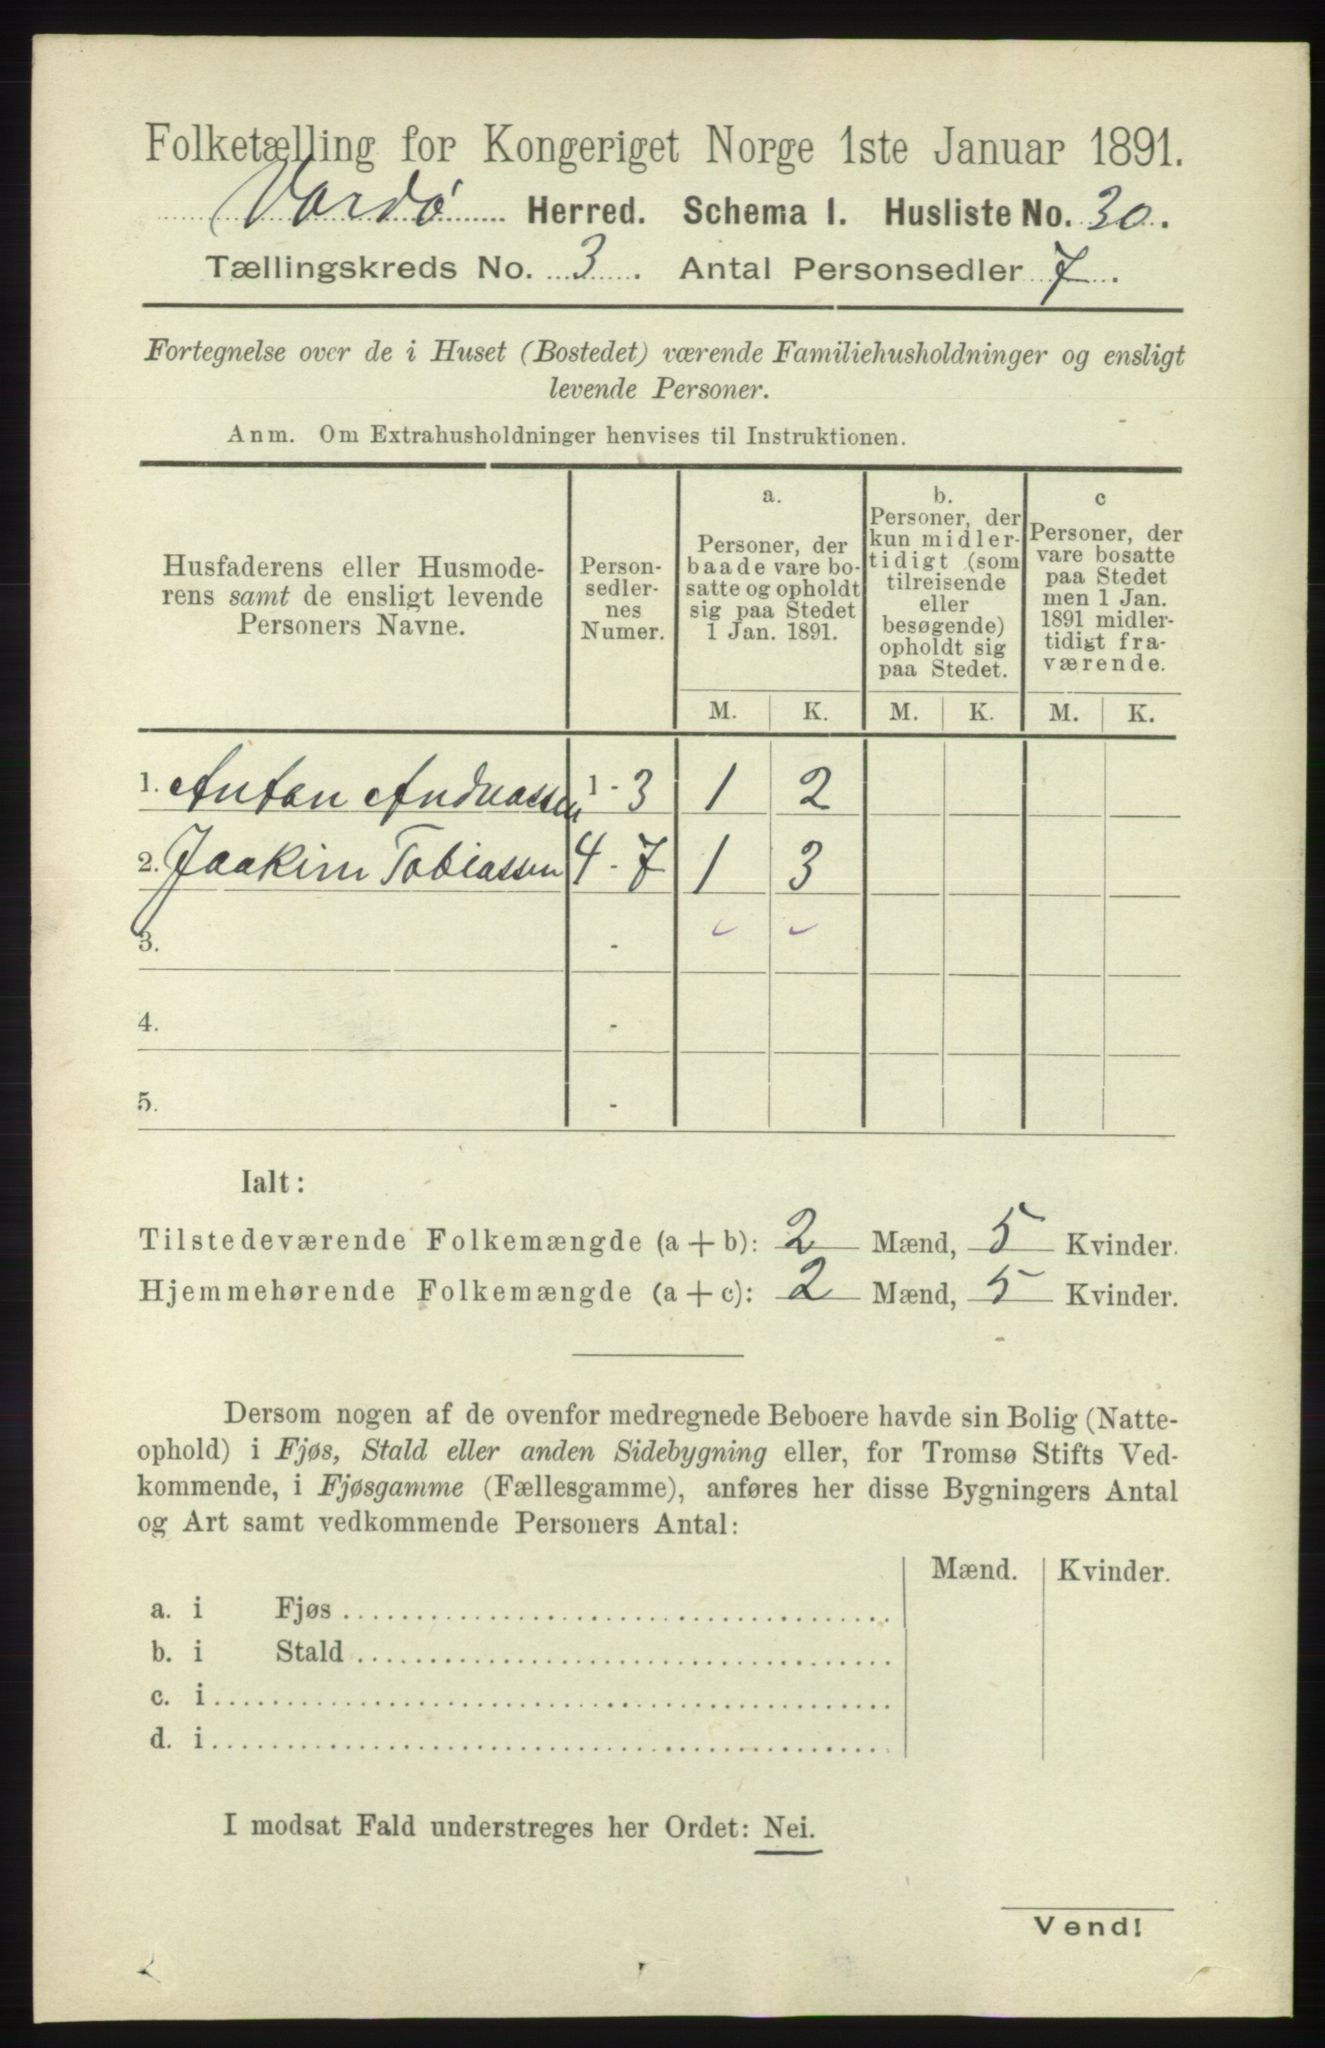 Folketælling for Kongeriget Norge 1ste Januar 1891.
Vardø Herred. Schema I. Husliste No. 30.
Tællingskreds No. 3. Antal Personsedler 7.
Fortegnelse over de i Huset (Bostedet) værende Familiehusholdninger og ensligt
levende Personer.
Anm. Om Extrahusholdninger henvises til Instruktionen.
Husfaderens eller Husmode-
rens samt de ensligt levende
Personers Navne.
Person-
sedler-
nes
Numer.
a.
Personer, der
baade vare bo-
satte og opholdt
sig paa Stedet
1 Jan. 1891.
b.
Personer, der
kun midler-
tidigt (som
tilreisende
eller
besøgende)
opholdt sig
paa Stedet.
c
Personer, der
vare bosatte
paa Stedet
men 1 Jan.
1891 midler-
tidigt fra-
værende.
M. K. M. K. M. K.
1. Anton Andreassen 1 - 3 1 2
2. Joakim Tobiassen 4 - 7 1 3
3. -
4. -
5. -
Ialt:
Tilstedeværende Folkemængde (a + b): 2 Mænd, 5 Kvinder.
Hjemmehørende Folkemængde (a + c): 2 Mænd, 5 Kvinder.
Dersom nogen af de ovenfor medregnede Beboere havde sin Bolig (Natte-
ophold) i Fjøs, Stald eller anden Sidebygning eller, for Tromsø Stifts Ved-
kommende, i Fjøsgamme (Fællesgamme), anføres her disse Bygningers Antal
og Art samt vedkommende Personers Antal:
Mænd. Kvinder.
a. i Fjøs
b. i Stald
c. i
d. i
I modsat Fald understreges her Ordet: Nei.
Vend!